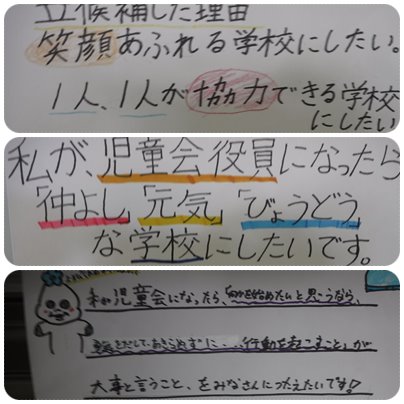 立候補した理由
笑顔あふれる学校にしたい。
1人、1人が協力できる学校
にしたい
私が、児童会役員になったら
「仲よし」「元気」「びょうどう」
な学校にしたいです。
私が児童会になったら、「何かを始めたいと思うなら、
勇気をだしてあきらめずに、行動を起こすこと」が
大事と言うこと、をみなさんにつたえたいです!